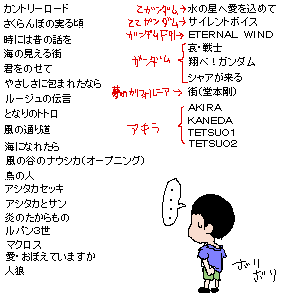 カントリーロード
さくらんぼの実る頃
時には昔の話を
海の見える街
君をのせて
やさしさに包まれたなら
ルージュの伝言
となりのトトロ
風の通り道
海になれたら
風の谷のナウシカ(オープニング)
鳥の人
アシタカセッキ
アシタカとサン
炎のたからもの
ルパン3世
マクロス
愛・おぼえていますか
人狼
Zガンダム→水の星へ愛を込めて
ZZガンダム→サイレントボイス
ガンダムF91→ETERNAL WIND
ガンダム
哀・戦士
翔べ!ガンダム
シャアが来る
夢のカリフォルニア→街(堂本剛)
アキラ
AKIRA
KANEDA
TETSUO1
TETSUO2
・・・
ボリ
ボリ